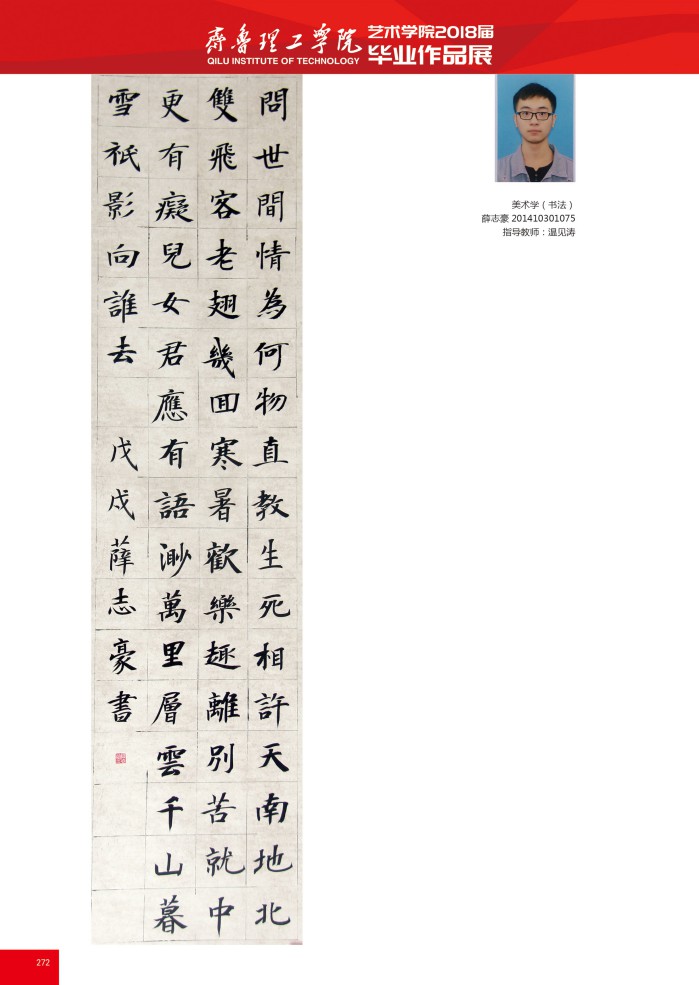 齊魯理工學院
QILU INSTITUTE OF TECHNOLOGY
艺术学院2018届
毕业作品展
問世間情為何物直教生死相許天南地北
雙飛客老翅幾回寒暑歡樂趣離別苦就中
更有癡兒女君應有語渺萬里層雲千山暮
雪祇影向誰去 戊戌薛志豪書
美术学（书法）
薛志豪 201410301075
指导教师：温见涛
272